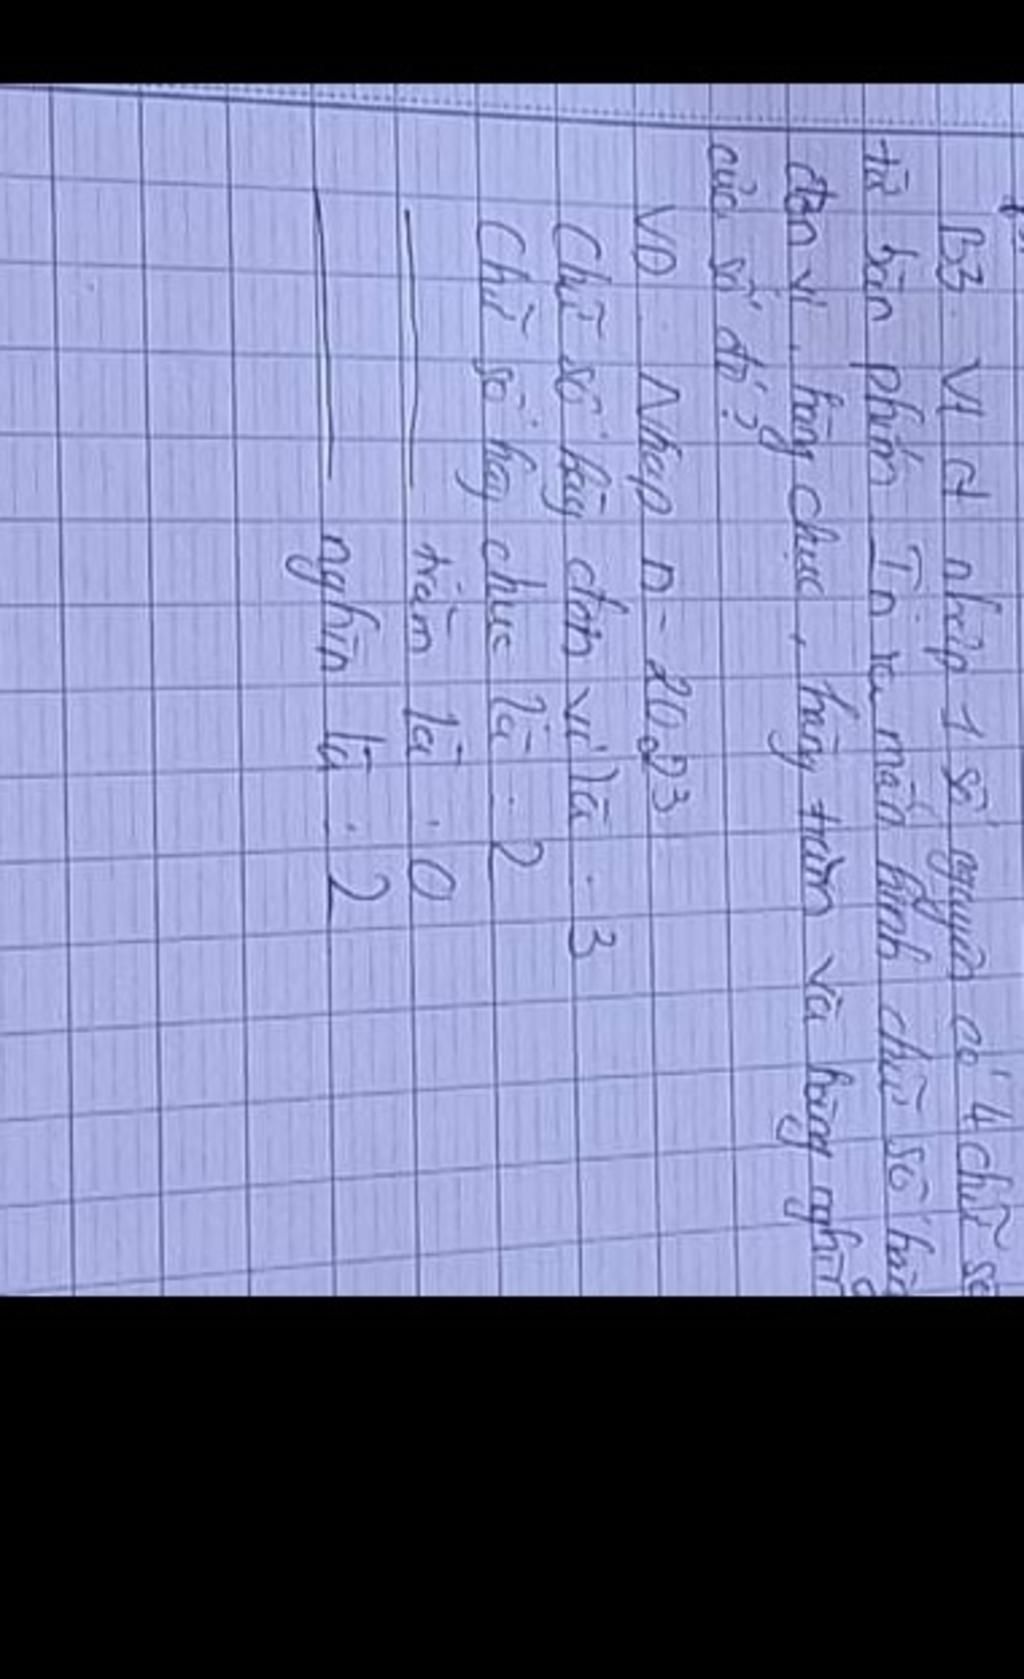 B3. Vi ct nhập 1 số nguyên có 4 chữ số
từ bàn phím In ra màn hình chữ số hàng
đơn vị, hàng chục, hàng trăm và hàng nghìn
của số đó?
VD. Nhap n = 2023
Chữ số hàng đơn vị là : 3
Chữ số hàng chục là : 2
trăm là : 0
nghìn là : 2